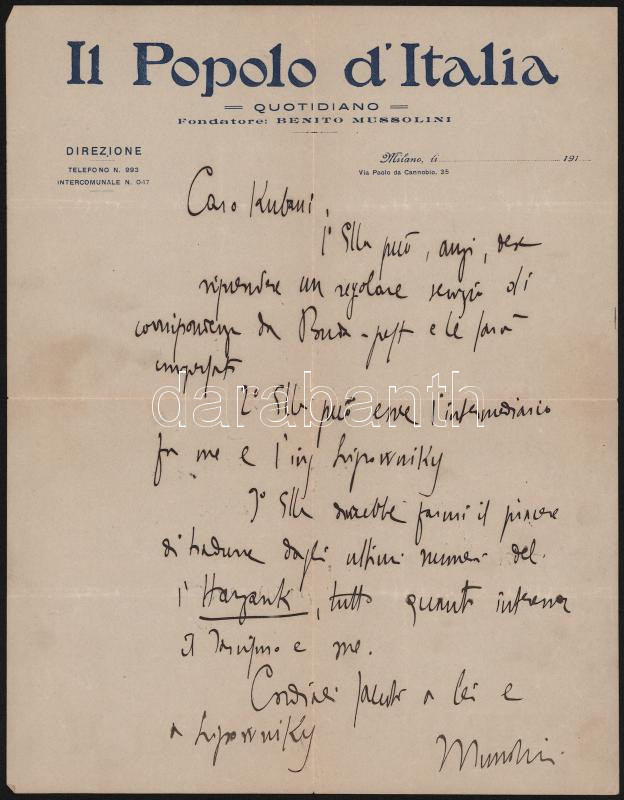 Il Popolo d'Italia
QUOTIDIANO
Fondatore: BENITO MUSSOLINI
DIREZIONE
TELEFONO N. 993
INTERCOMUNALE N. 047
Milano, li 191
Via Paolo da Cannobio, 35
Caro Kubani,
1° Ella può, anzi, deve
riprendere un regolare servizio di
corrispondenze da Buda-pest e le sarà
2° Ella può essere l'intermediario
fra me e l'ing Lipowniky
3° Ella dovrebbe farmi il piacere
di tradurre dagli ultimi numeri del
l'Hazank, tutto quanto interessa
il fascismo e me.
Cordiali saluti a lei e
a Lipowniky
Mussolini
darabanth